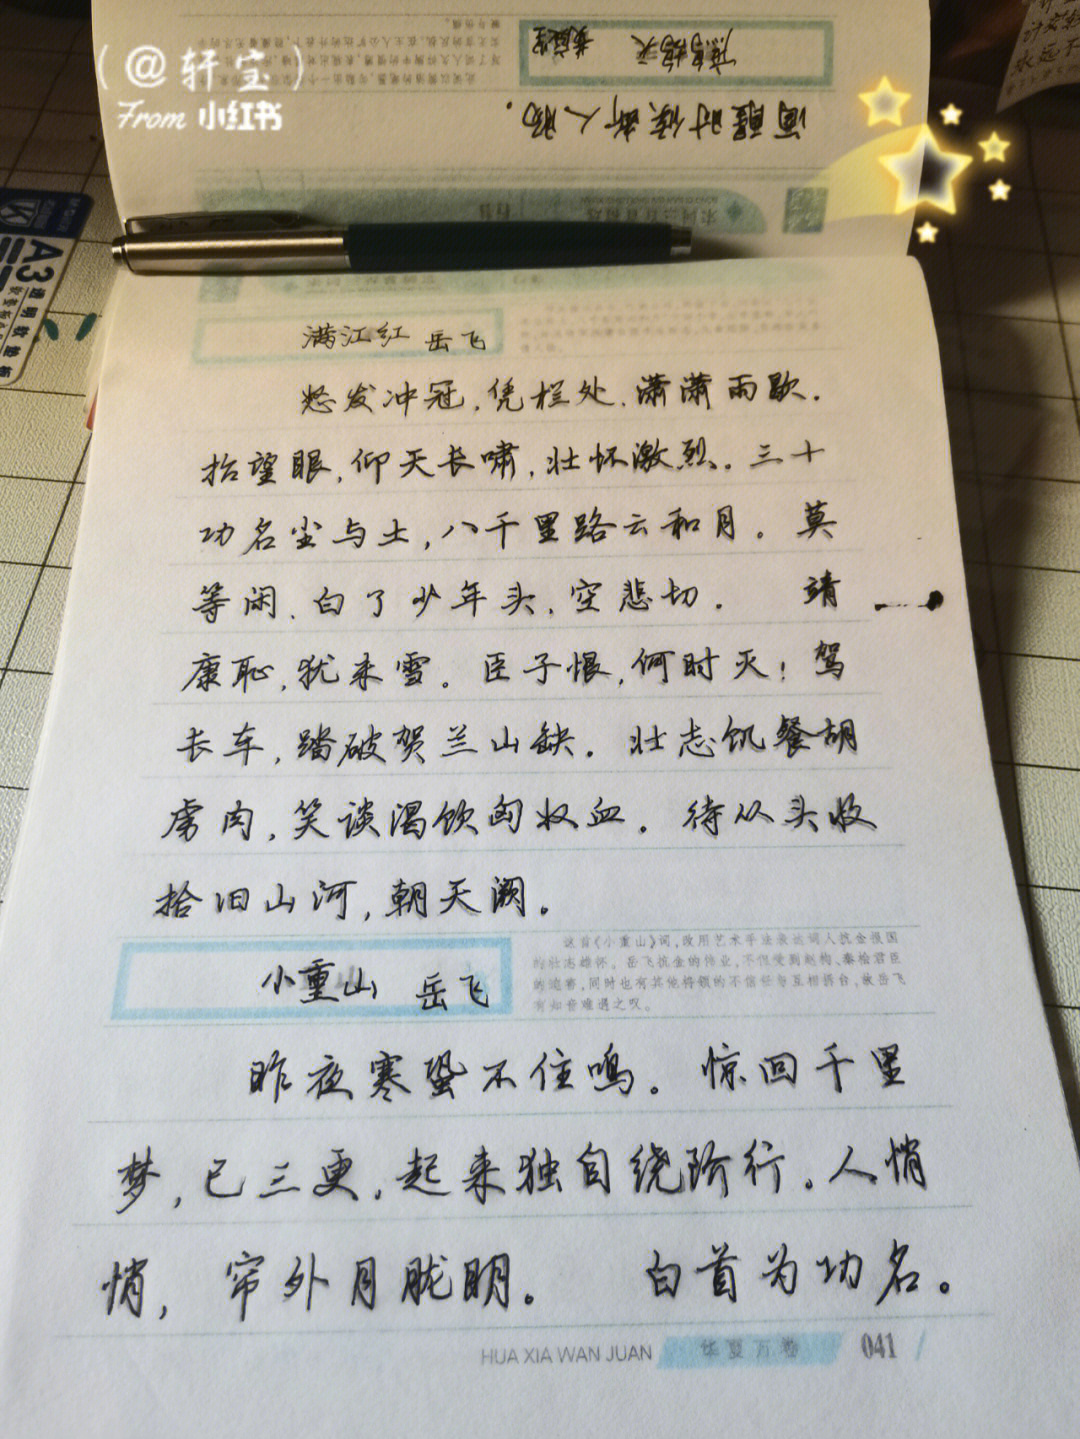 (@轩宝)
From 小红书
酒醒时候断人肠。
A3
满江红 岳飞
怒发冲冠,凭栏处、潇潇雨歇.
抬望眼,仰天长啸,壮怀激烈。三十
功名尘与土,八千里路云和月。莫
等闲、白了少年头,空悲切. 靖
康耻,犹未雪。臣子恨,何时灭!驾
长车,踏破贺兰山缺。壮志饥餐胡
虏肉,笑谈渴饮匈奴血。待从头收
拾旧山河,朝天阙。
小重山 岳飞
这首《小重山》词,改用艺术手法表达词人抗金报国
的壮志雄怀。岳飞抗金的伟业,不但受到赵构、秦桧君臣
的迫害,同时也有其他将领的不信任与互相拆台,故岳飞
有知音难遇之叹。
昨夜寒蛩不住鸣。惊回千里
梦,已三更,起来独自绕阶行。人悄
悄,帘外月胧明。 白首为功名。
HUA XIA WAN JUAN 华夏万卷 041